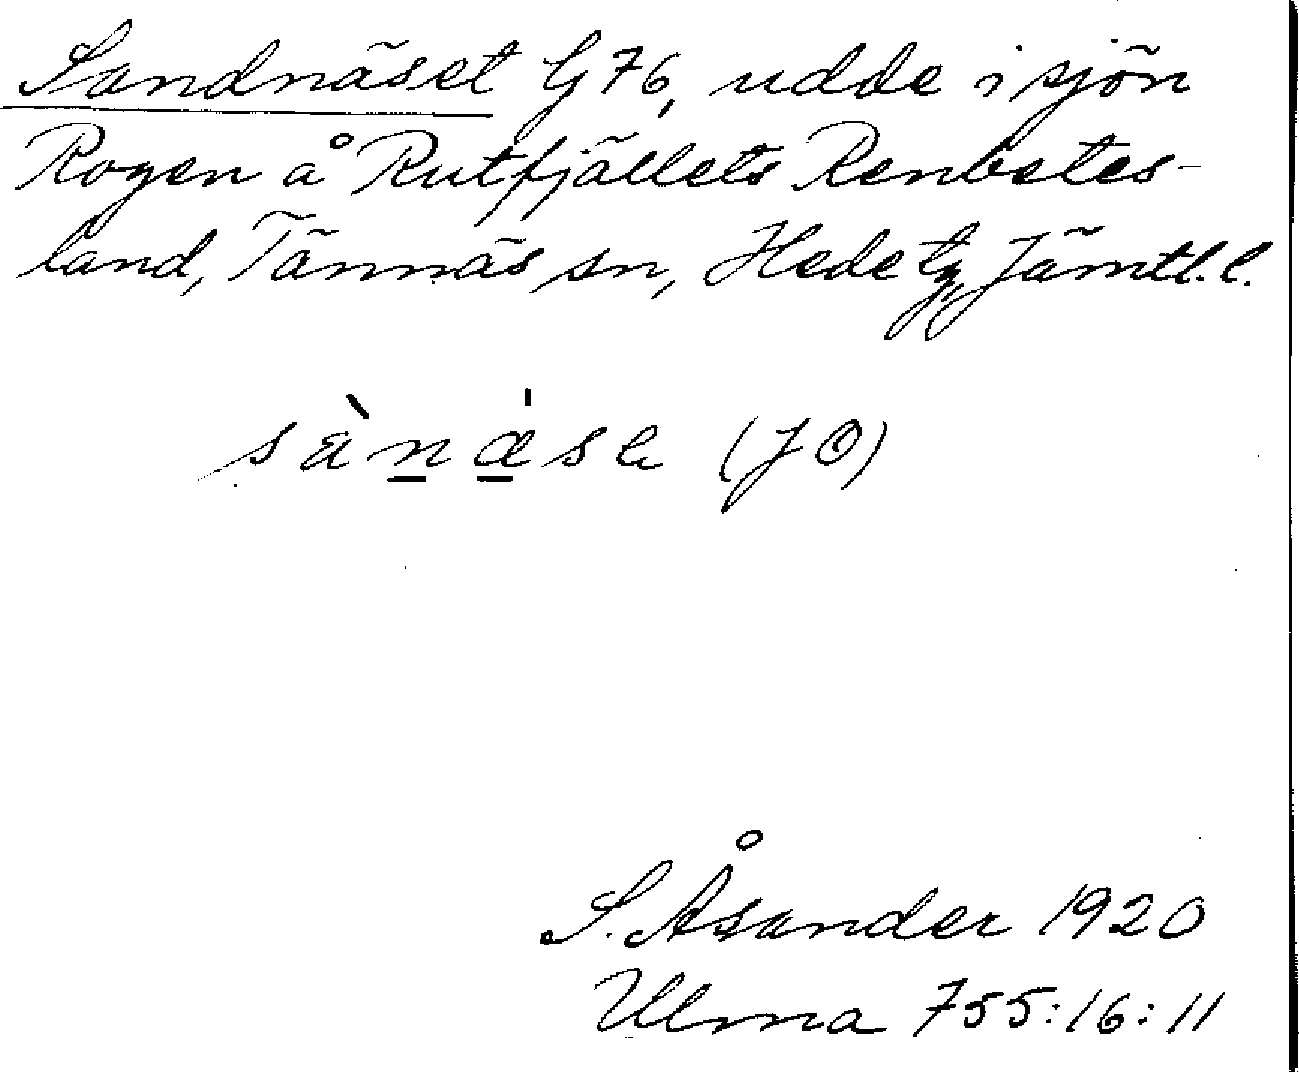 Sandnäset G 76, udde i sjön
Rogen å Rutfjällets Renbetes-
land, Tännäs sn, Hede tg, Jämtl. l.
sànǽse (JÖ)
S. Åsander 1920
Ulma 755:16:11